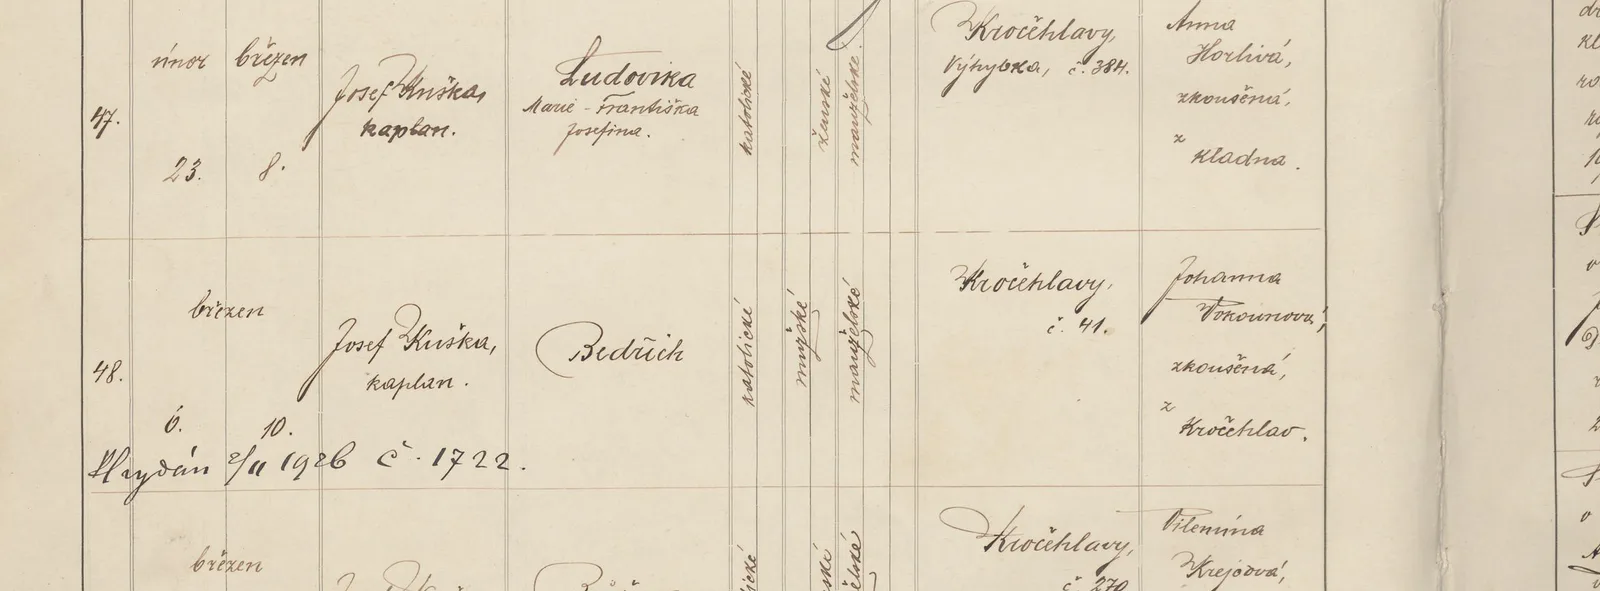 únor březen
Josef Kuška,
kaplan.
Ludovika
Marie - Františka
Josefina.
katolické
ženské
manželské.
Kročehlavy,
Výhybka, č. 384.
Anna
Horlivá,
zkoušená,
z
Kladna.
47.
23. 8.
březen
Josef Kuška,
kaplan.
Bedřich
katolické
mužské
manželské
Kročehlavy,
č. 41.
Johanna
Vokounová,
zkoušená,
z
Kročehlav.
48.
6. 10.
2/II 1926 č. 1722.
březen
Kročehlavy,
č. 270
Vilemína
Krejčová,